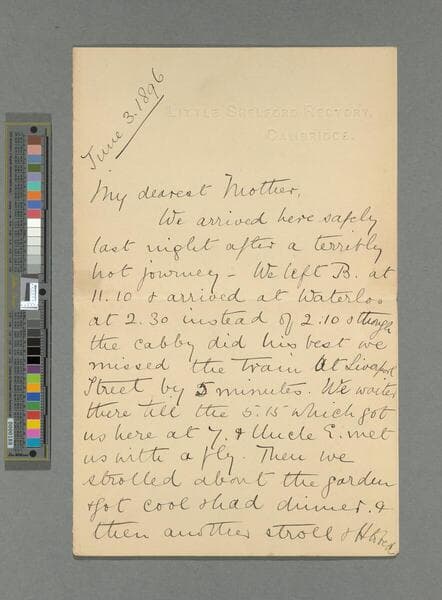 June 3. 1896
LITTLE SHELFORD RECTORY,
CAMBRIDGE.
My dearest Mother,
We arrived here safely
last night after a terribly
hot journey – We left B. at
11.10 & arrived at Waterloo
at 2.30 instead of 2.10 & though
the cabby did his best we
missed the train at Liverpool
Street by 5 minutes. We waited
there till the 5.15 which got
us here at 7. & Uncle E. met
us with a fly. Then we
strolled about the garden
& got cool & had dinner. &
then another stroll &